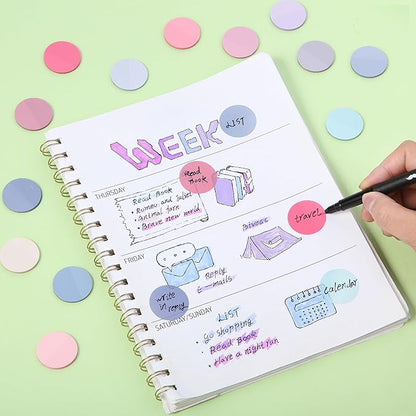 WEEK
LIST
THURSDAY
Read Book
Read Book
• Romeo and Juliet
• Animal farm
• Brave new world
travel
FRIDAY
Reply
E-mails
write
in reply
calendar
SATURDAY/SUNDAY
LIST
Go shopping
• Read Book
• Have a night run